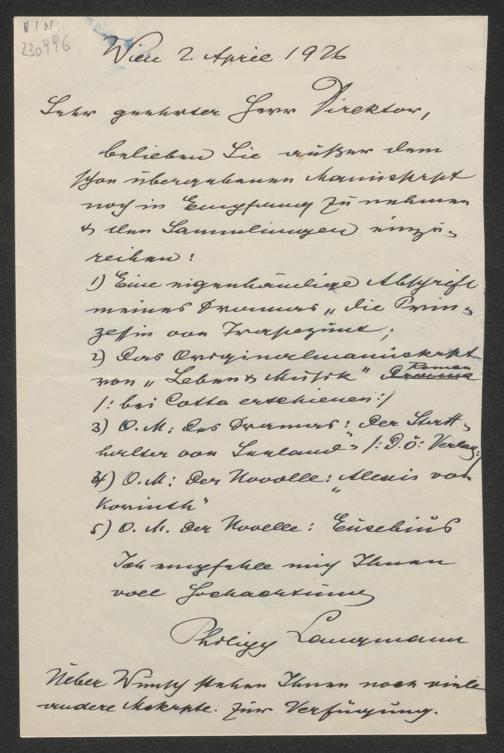 I.N.
230996
Wien 2. April 1926
Sehr geehrter Herr Direktor,
belieben Sie außer dem
schon übergebenen Manuskrpt
noch in Empfang zu nehmen
& den Sammlungen einzu-
reihen:
1) Eine eigenhändige Abschrift
meines Dramas „die Prin-
zessin von Trapezunt;
2) das Originalmanuskrpt
von „Leben & Musik" Drama Roman
/: bei Cotta erschienen:/
3) O. M: des Dramas: der Statt-
halter von Seeland" /: D. Ö: Verlag:/
4) O. M: der Novelle: „Alexis von
Korinth"
5) O. M. der Novelle: Eusebius
Ich empfehle mich Ihnen
voll Hochachtung
Philipp Langmann
Ueber Wunsch stehen Ihnen noch viele
andere Mskrpte. zur Verfügung.